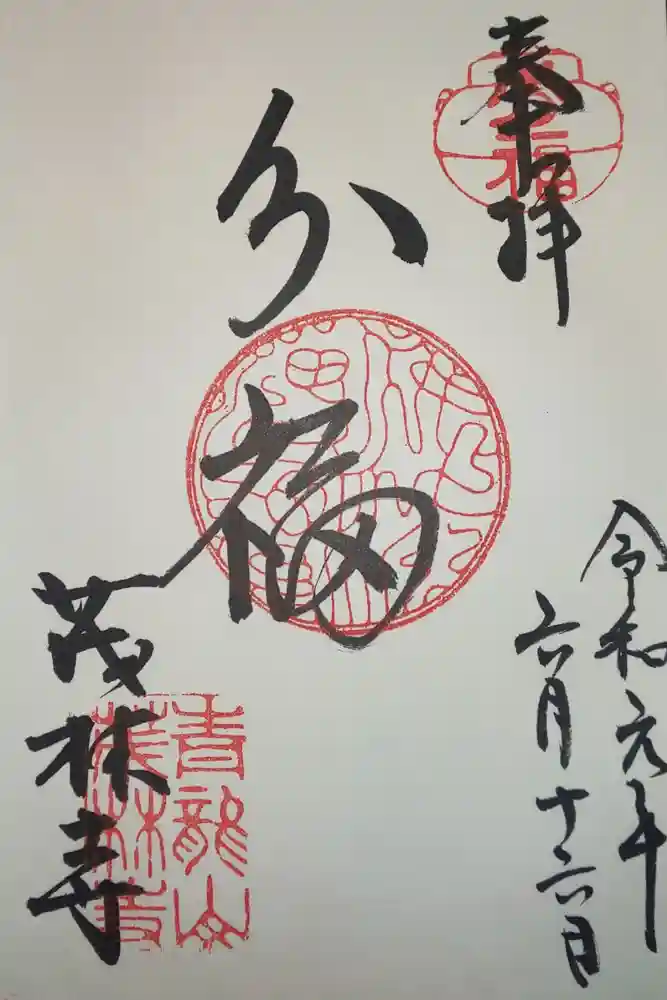 奉拝
分福
茂林寺
令和元年
六月十六日
分福
青龍山
茂林寺